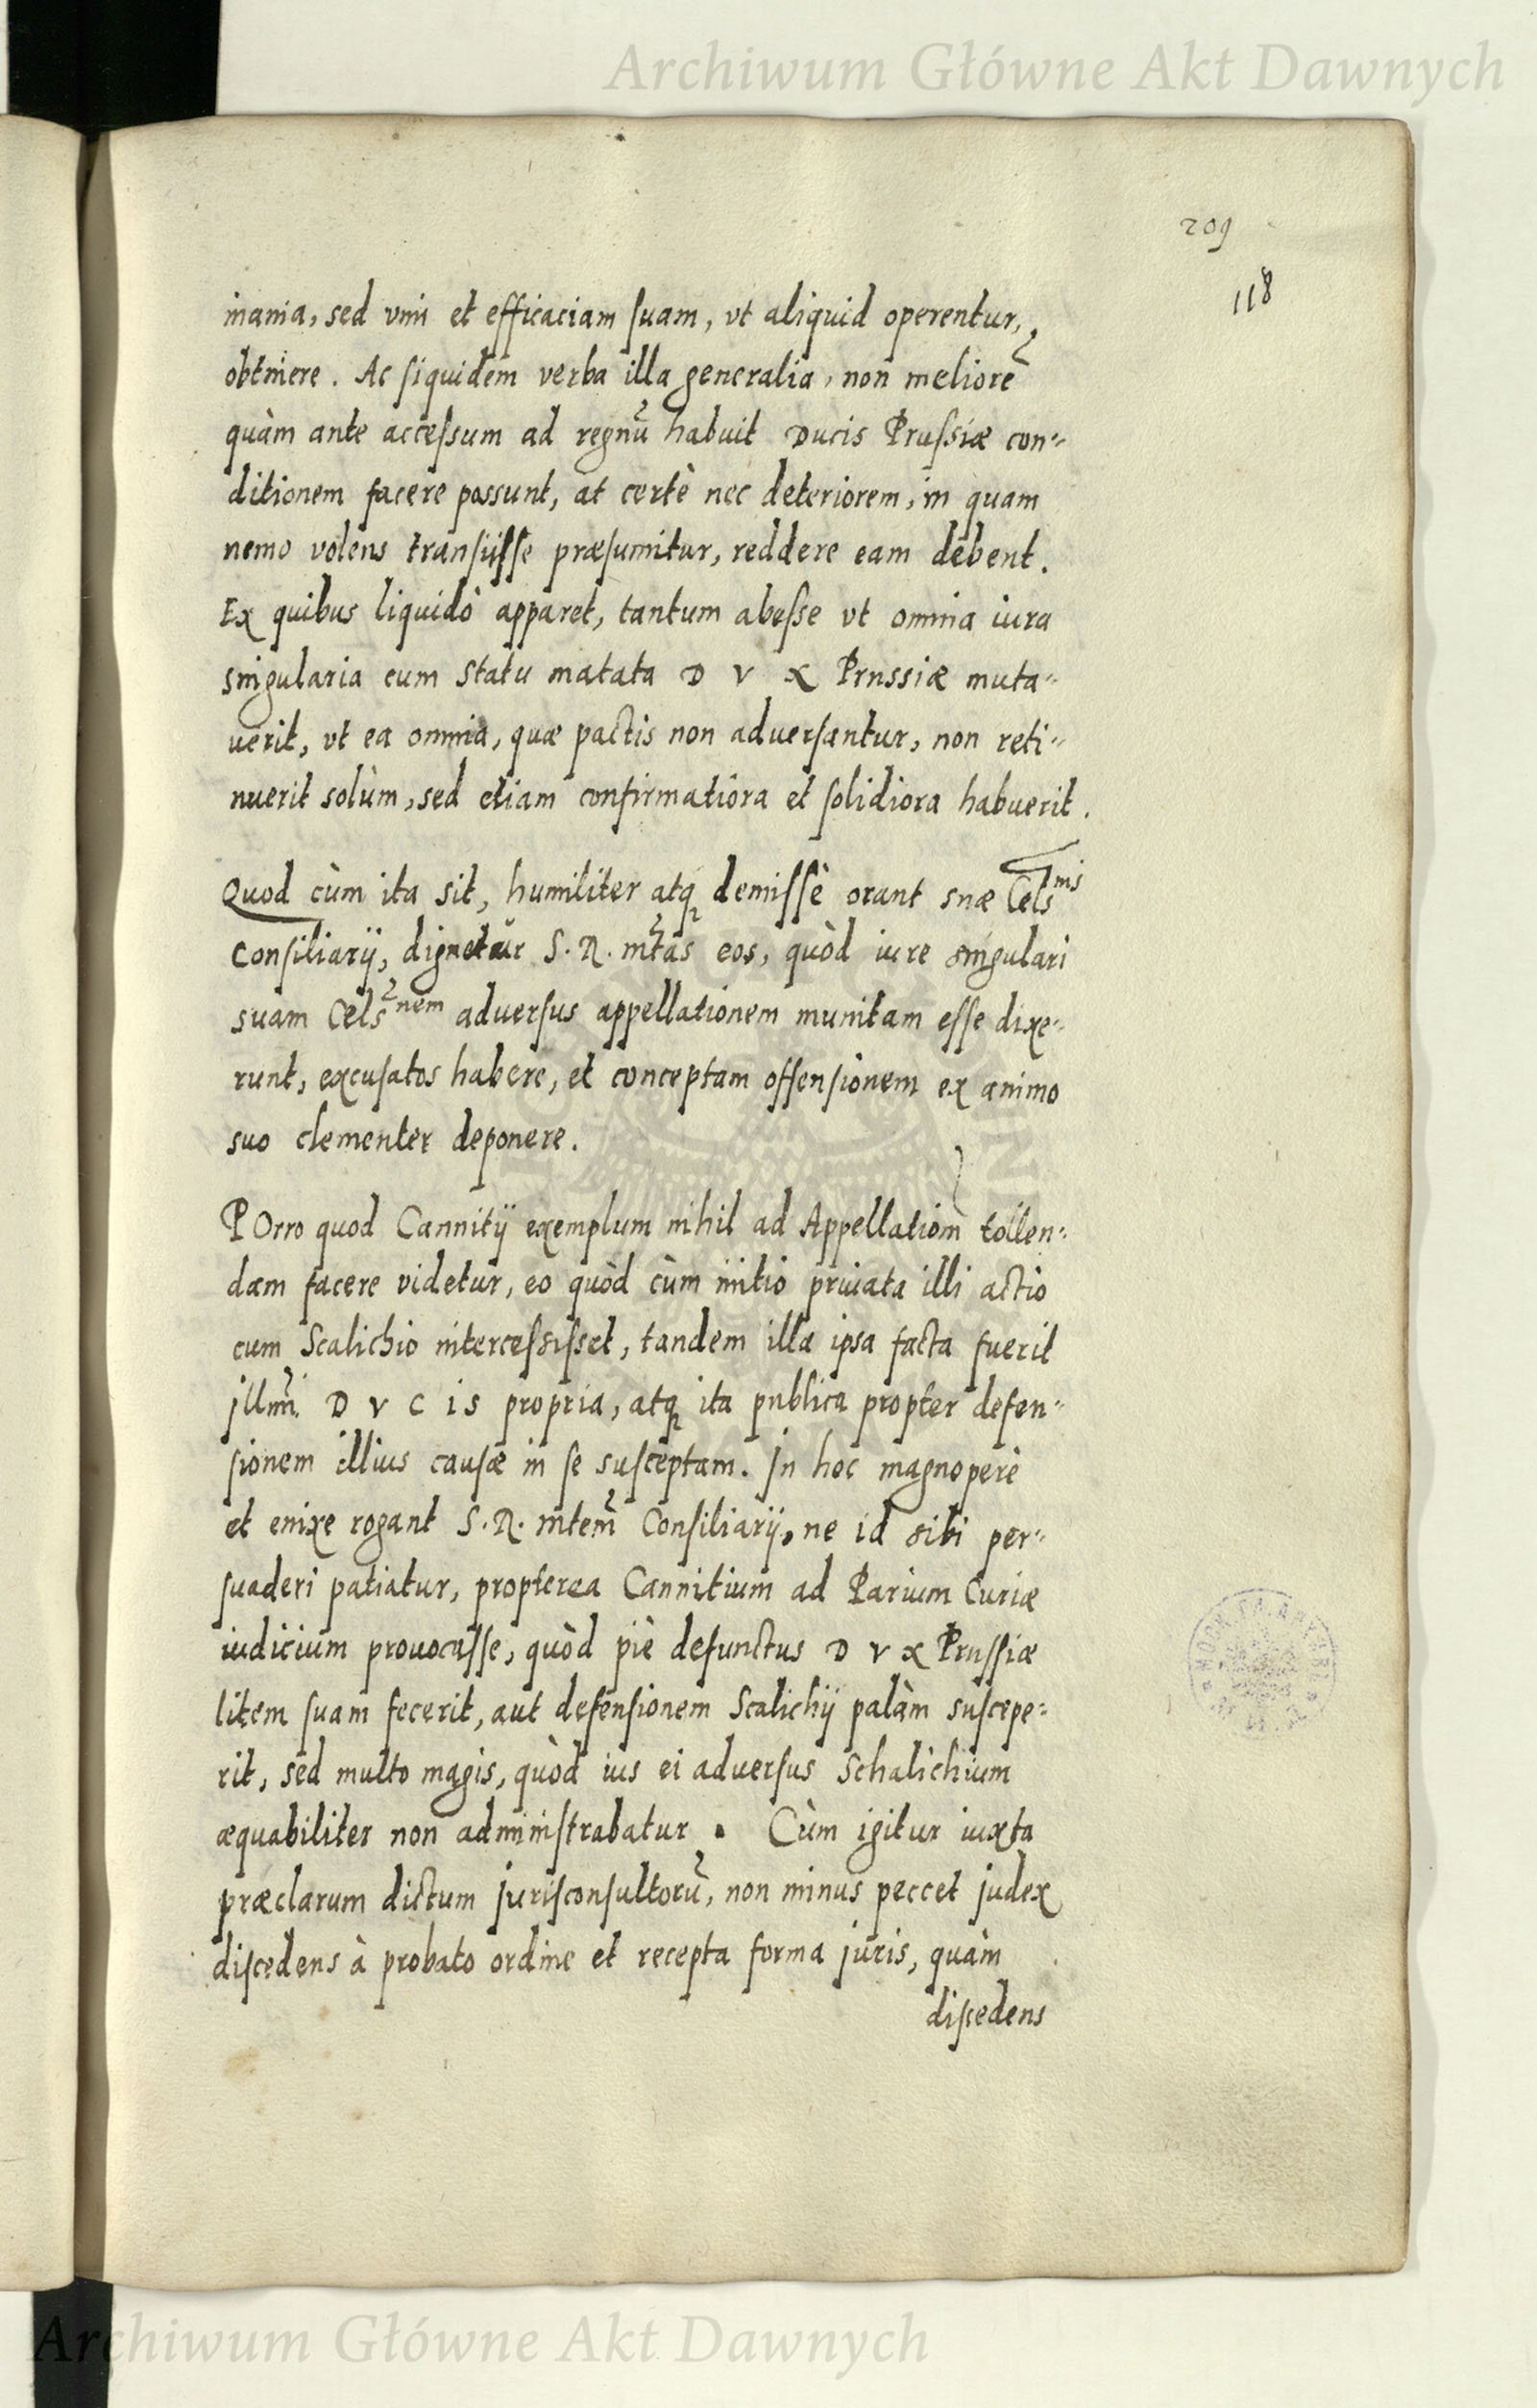 Archiwum Główne Akt Dawnych
209
118
inania, sed vim et efficaciam suam, vt aliquid operentur,
obtinere. Ac siquidem verba illa generalia, non meliorẽ
quàm ante accessum ad regnũ habuit Ducis Prussiæ con-
ditionem facere possunt, at certè nec deteriorem, in quam
nemo volens transijsse præsumitur, reddere eam debent.
Ex quibus liquidò apparet, tantum abesse vt omnia iura
singularia cum Statu matata D V X Prussiæ muta-
uerit, vt ea omnia, quæ pactis non aduersantur, non reti-
nuerit solùm, sed etiam confirmatiora et solidiora habuerit.
Quod cùm ita sit, humiliter atq demissè orant suæ Cels^nis
Consiliarij, dignetur S. R. mtas eos, quòd iure singulari
suam Cels^nem aduersus appellationem munitam esse dixe-
runt, excusatos habere, et conceptam offensionem ex animo
suo clementer deponere.
POrro quod Cannitij exemplum nihil ad Appellationẽ tollen-
dam facere videtur, eo quòd cùm initio priuata illi actio
cum Scalichio intercessisset, tandem illa ipsa facta fuerit
jllmi. D V C i S propria, atq ita publica propter defen-
sionem illius causæ in se susceptam. In hoc magnoperè
et enixe rogant S. R. mtem Consiliarij, ne id sibi per-
suaderi patiatur, propterea Cannitium ad Parium Curiæ
iudicium prouocasse, quòd piè defunctus D V X Prussiæ
litem suam fecerit, aut defensionem Scalichij palàm suscepe-
rit, sed multo magis, quòd ius ei aduersus Schalichium
æquabiliter non administrabatur. Cùm igitur iuxta
præclarum dictum jurisconsultorũ, non minus peccet judex
discedens à probato ordine et recepta forma juris, quàm
discedens
Archiwum Główne Akt Dawnych